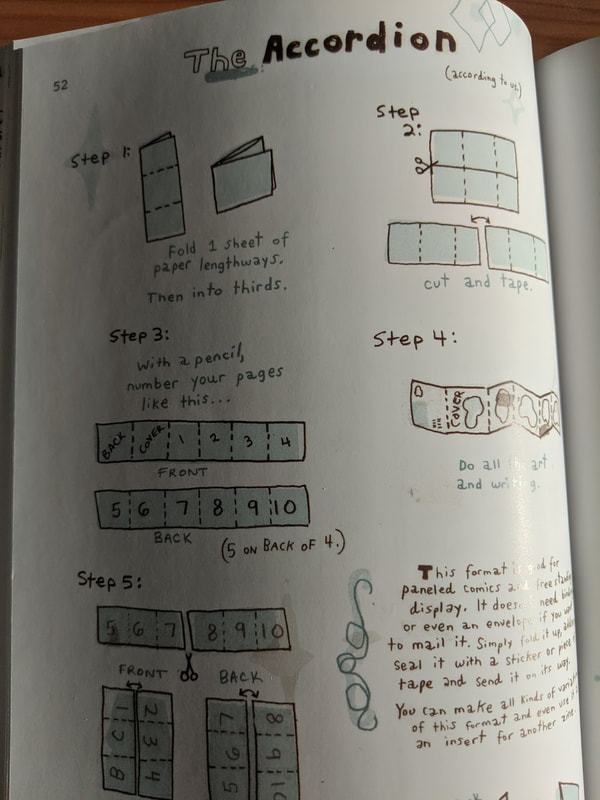 52
The Accordion
(according to us.)
Step 1:
Fold 1 sheet of
paper lengthways.
Then into thirds.
Step
2:
cut and tape.
Step 3:
With a pencil,
number your pages
like this...
BACK COVER 1 2 3 4
FRONT
5 6 7 8 9 10
BACK
(5 ON BACK OF 4.)
Step 4:
COVER
Do all art
and writing.
Step 5:
5 6 7 8 9 10
FRONT
BACK
1 2
3
8 4
7 8
6 9
5 10
This format is good for
paneled comics and free
display. It need
or even an envelope if you
to mail it. Simply fold it up,
seal it with a sticker or
tape and send it on its way.
You can make all kinds of
of this format and even
an insert for another zine.